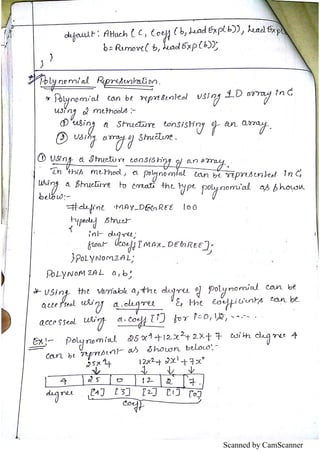 default : Attach ( C, Coeff ( b, Lead Exp(b)), Lead Exp(
b = Remove( b, Lead Exp(b));
}
}
* Polynomial Representation.
* Polynomial can be represented using 1D array in C
using 2 methods:-
① using a structure consisting of an array.
② using array of structure.
① using a structure consisting of an array.
In this method, a polynomial can be represented in C,
using a structure to create the type polynomial as shown
below:-
#define MAX_DEGREE 100
typedef struct
{
int degree;
float coeff [MAX_DEGREE];
} POLYNOMIAL;
POLYNOMIAL a, b;
* using the variable a, the degree of polynomial can be
accessed using a.degree & the coefficients can be
accessed using a.coeff [i] for i=0,1,2, .....
Ex:- Polynomial 25x⁴+12x²+2x+7 with degree 4
can be represent as shown below:-
25x⁴ 12x² + 2x¹ + 7x⁰
4 25 0 12 2 7
degree [4] [3] [2] [1] [0]
coeff
Scanned by CamScanner